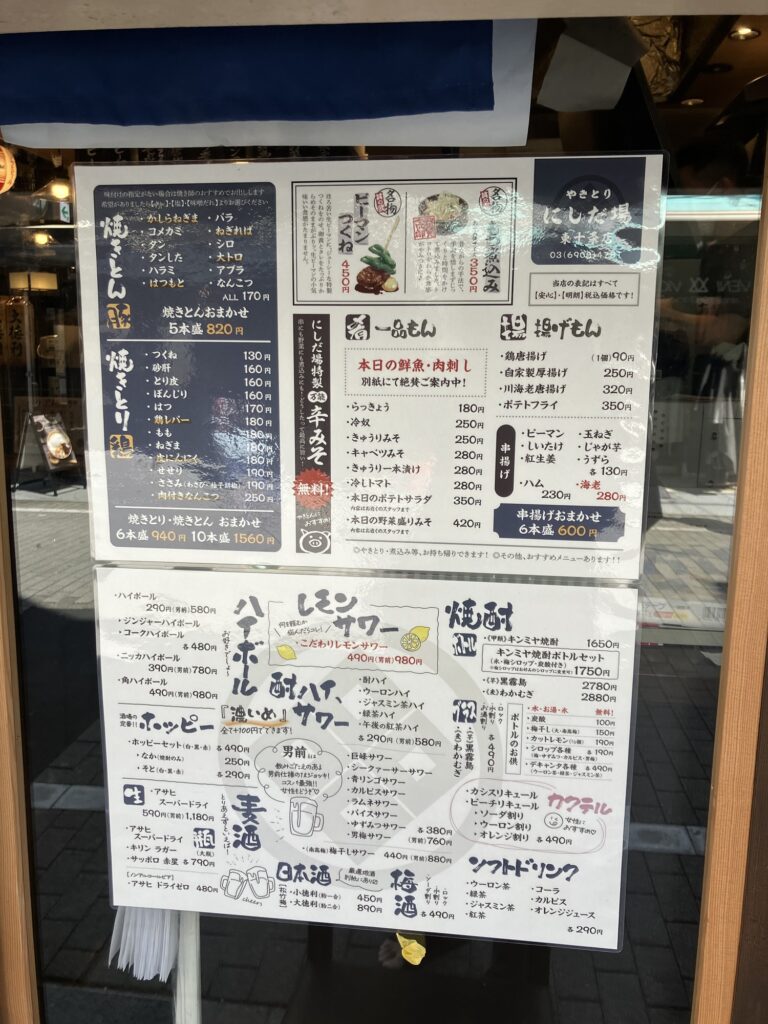 味付けの指定がない場合は焼き師のおすすめでお出しします
焼きとん
・かしらねぎま
・コメカミ
・タン
・タンした
・ハラミ
・はつもと
・バラ
・ねぎれば
・シロ
・大トロ
・アブラ
・なんこつ
ALL 170円
焼きとんおまかせ
5本盛 820円
焼きとり
・つくね 130円
・砂肝 160円
・とり皮 160円
・ぼんじり 160円
・はつ 170円
・鶏レバー 180円
・もも 180円
・ねぎま 180円
・皮にんにく 180円
・せせり 190円
・ささみ(わさび・梅子胡椒) 190円
・肉付きなんこつ 250円
焼きとり・焼きとん おまかせ
6本盛 940円 10本盛 1560円
名物
ピーマンつくね
450円
名物
煮込み
350円
やきとり
にしだ場
東十条店
当店の表記はすべて
【安心】・【明朗】税込価格です!
にしだ場特製
万能
辛みそ
無料!
肴 一品もん
本日の鮮魚・肉刺し
別紙にて絶賛ご案内中!
・らっきょう 180円
・冷奴 250円
・きゅうりみそ 250円
・キャベツみそ 280円
・きゅうり一本漬け 280円
・冷しトマト 280円
・本日のポテトサラダ 350円
内容はお近くのスタッフまで
・本日の野菜盛りみそ 420円
内容はお近くのスタッフまで
揚げもん
・鶏唐揚げ (1個)90円
・自家製厚揚げ 250円
・川海老唐揚げ 320円
・ポテトフライ 350円
串揚げ
・ピーマン
・しいたけ
・紅生姜
・玉ねぎ
・じゃが芋
・うずら
各130円
・ハム 230円
・海老 280円
串揚げおまかせ
6本盛 600円
◎やきとり・煮込み等、お持ち帰りできます! ◎その他、おすすめメニューあります!!
・ハイボール
290円(男前)580円
・ジンジャーハイボール
・コークハイボール
各480円
・ニッカハイボール
390円(男前)780円
・角ハイボール
490円(男前)980円
ハイボール
お好きでしょ〜
レモンサワー
・こだわりレモンサワー
490円(男前)980円
酎ハイ、サワー
『濃いめ』
全て+100円でできます!
・酎ハイ
・ウーロンハイ
・ジャスミン茶ハイ
・緑茶ハイ
・午後の紅茶ハイ
各290円(男前)580円
・巨峰サワー
・シークァーサーサワー
・青リンゴサワー
・カルピスサワー
・ラムネサワー
・バイスサワー
・ゆずみつサワー
・男梅サワー
各380円
(男前)760円
・(南高梅)梅干しサワー 440円(男前)880円
男前は
飲みごたえのある
男前仕様のでかジョッキ!
コスパ最強!!
女性もどうぞ♡
酒場の定番!
ホッピー
・ホッピーセット(白・黒・赤) 各490円
・なか(焼酎のみ) 250円
・そと(白・黒・赤) 各290円
生
・アサヒ
スーパードライ
590円(男前)1,180円
・アサヒ
スーパードライ
・キリン ラガー
・サッポロ 赤星 各790円
瓶
(大瓶)
[ノンアルコールビール]
・アサヒ ドライゼロ 480円
麦酒
とりあえずといえば!
cheers
日本酒
厳選地酒
別紙にあり〼
[松竹梅]
・小徳利(約一合) 450円
・大徳利(約二合) 890円
梅酒
・ロック
・水割り
・ソーダ割り
各490円
焼酎
ボトル
・(甲類)キンミヤ焼酎 1650円
キンミヤ焼酎ボトルセット
(氷・梅シロップ・炭酸付き)
1750円
・(芋)黒霧島 2780円
・(麦)わかむぎ 2880円
(芋)黒霧島
(麦)わかむぎ
・ロック
・水割り
・お湯割り
各490円
ボトルのお供
・水・お湯・氷 無料!
・炭酸 100円
・梅干し(大・南高梅) 150円
・カットレモン 190円
・シロップ各種 各190円
(梅・ゆずみつ・カルピス・男梅)
・デキャンタ各種 各490円
(ウーロン茶・緑茶・ジャスミン茶)
カクテル
・カシスリキュール
・ピーチリキュール
・ソーダ割り
・ウーロン割り
・オレンジ割り 各490円
女性におすすめ♡
ソフトドリンク
・ウーロン茶
・緑茶
・ジャスミン茶
・紅茶
・コーラ
・カルピス
・オレンジジュース
各290円